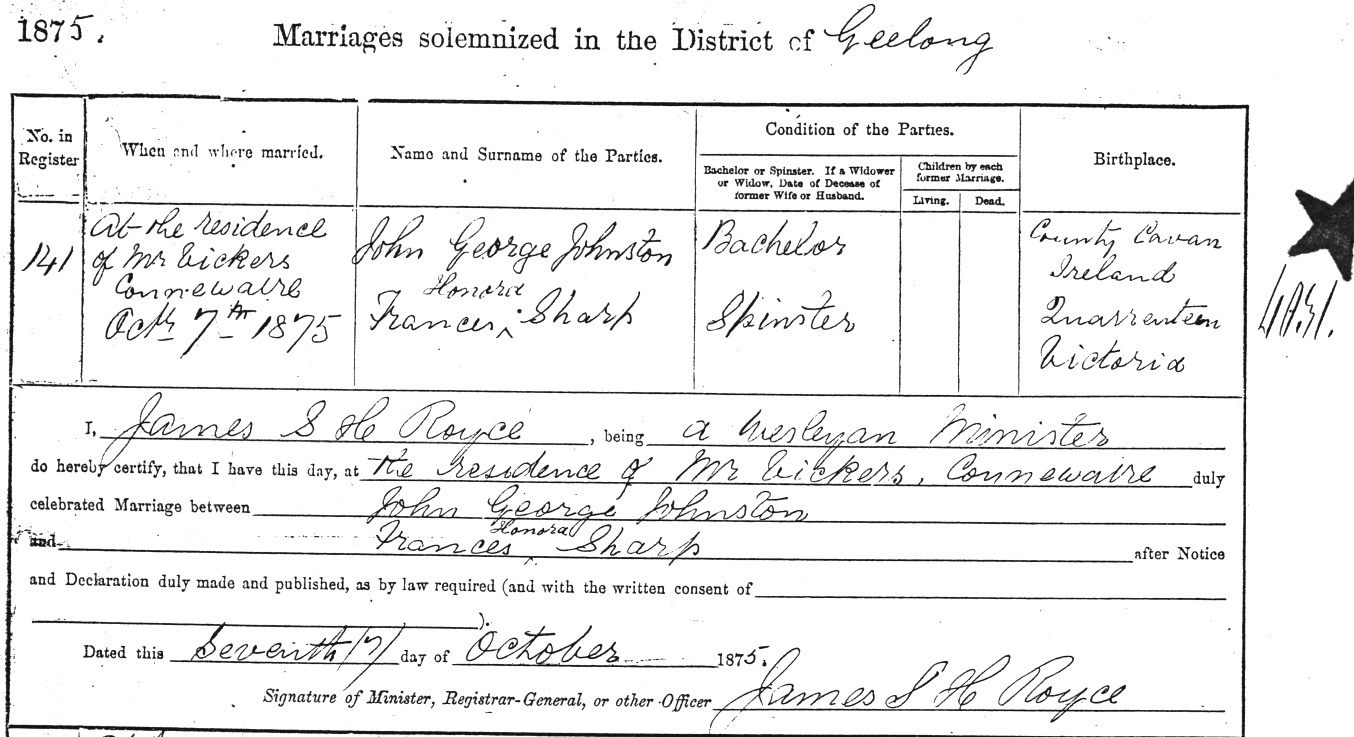 1875.
Marriages solemnized in the District of Geelong
No. in Register
When and where married.
Name and Surname of the Parties.
Condition of the Parties.
Bachelor or Spinster. If a Widower or Widow, Date of Decease of former Wife or Husband.
Children by each former Marriage.
Living.
Dead.
Birthplace.
141
At the residence
of Mr Vickers
Connewaire
Octr 7th 1875
John George Johnston
Honora
Frances ‸ Sharp
Bachelor
Spinster
County Cavan
Ireland
Quarrenteen
Victoria
I, James S H Royce, being a Wesleyan Minister
do hereby certify, that I have this day, at the residence of Mr Vickers, Connewaire duly
celebrated Marriage between John George Johnston
Honora
and Frances ‸ Sharp after Notice
and Declaration duly made and published, as by law required (and with the written consent of
).
Dated this Seventh (7) day of October 1875.
Signature of Minister, Registrar-General, or other Officer James S H Royce